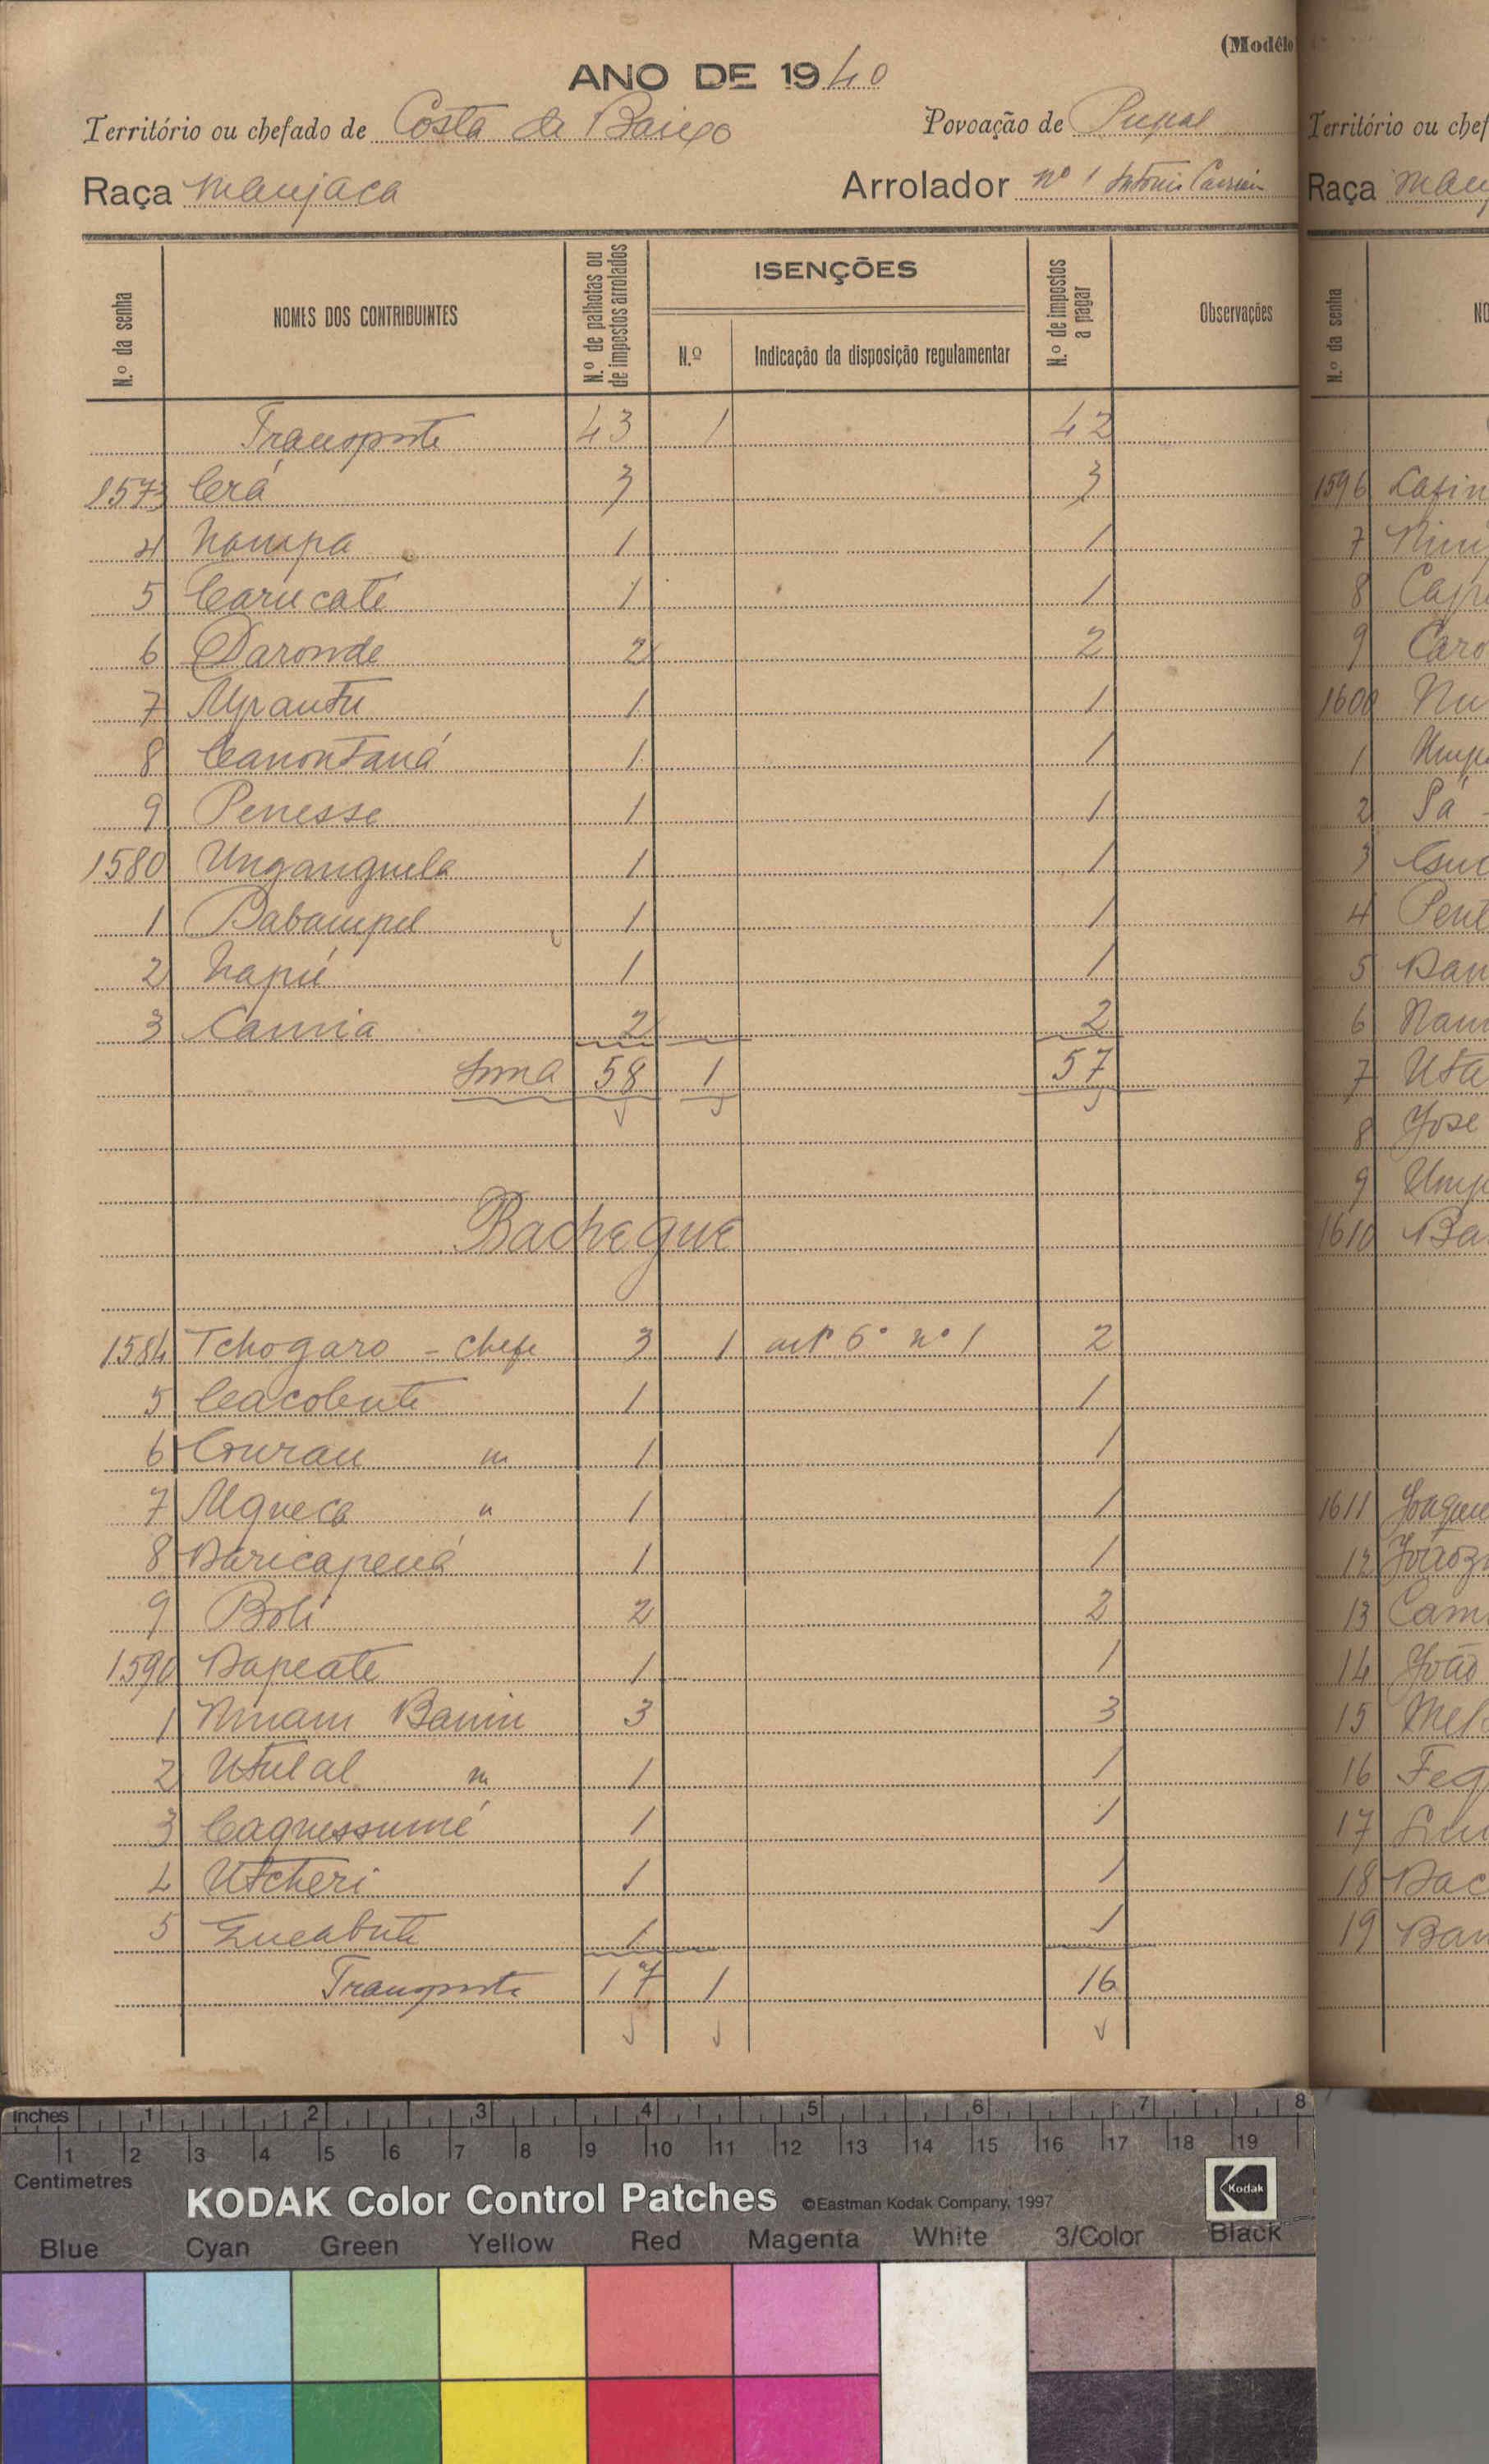 (Modêlo
ANO DE 1940
Território ou chefado de Costa de Baixo Povoação de Pupal
Raça Manjaca Arrolador nº 1 António
N.º da senha
NOMES DOS CONTRIBUINTES
N.º de palhotas ou de impostos arrolados
ISENÇÕES
N.º
Indicação da disposição regulamentar
N.º de impostos a pagar
Observações
Transporte 43 1 42
1573 Cerá 3 3
4 Nampa 1 1
5 Carucate 1 1
6 Daronde 2 2
7 Upantu 1 1
8 Canontaná 1 1
9 Penesse 1 1
1580 Unganguela 1 1
1 Babampel 1 1
2 Napú 1 1
3 Camia 2 2
Soma 58 1 57
Bacheque
1584 Tchogaro - Chefe 3 1 artº 6º nº 1 2
5 Cacolente 1 1
6 1 1
7 Uqueca " 1 1
8 Daricapená 1 1
9 Boli 2 2
1590 Dapeate 1 1
1 3 3
2 Utulal m 1 1
3 Caquessumé 1 1
4 Utcheri 1 1
5 1 1
Transporte 17 1 16
Território ou chef
Raça Man
N.º da senha
NO
1596
7
8
9 Caro
1600 Nu
1 Ump
2 Pá
3
4
5
6
7 Uta
8 José
9 Ump
1610 Ba
1611
12
13 Cam
14 João
15
16
17
18 Bac
19 Ban
inches 1 2 3 4 5 6 7 8
1 2 3 4 5 6 7 8 9 10 11 12 13 14 15 16 17 18 19
Centimetres
KODAK Color Control Patches ©Eastman Kodak Company, 1997 Kodak
Blue Cyan Green Yellow Red Magenta White 3/Color Black